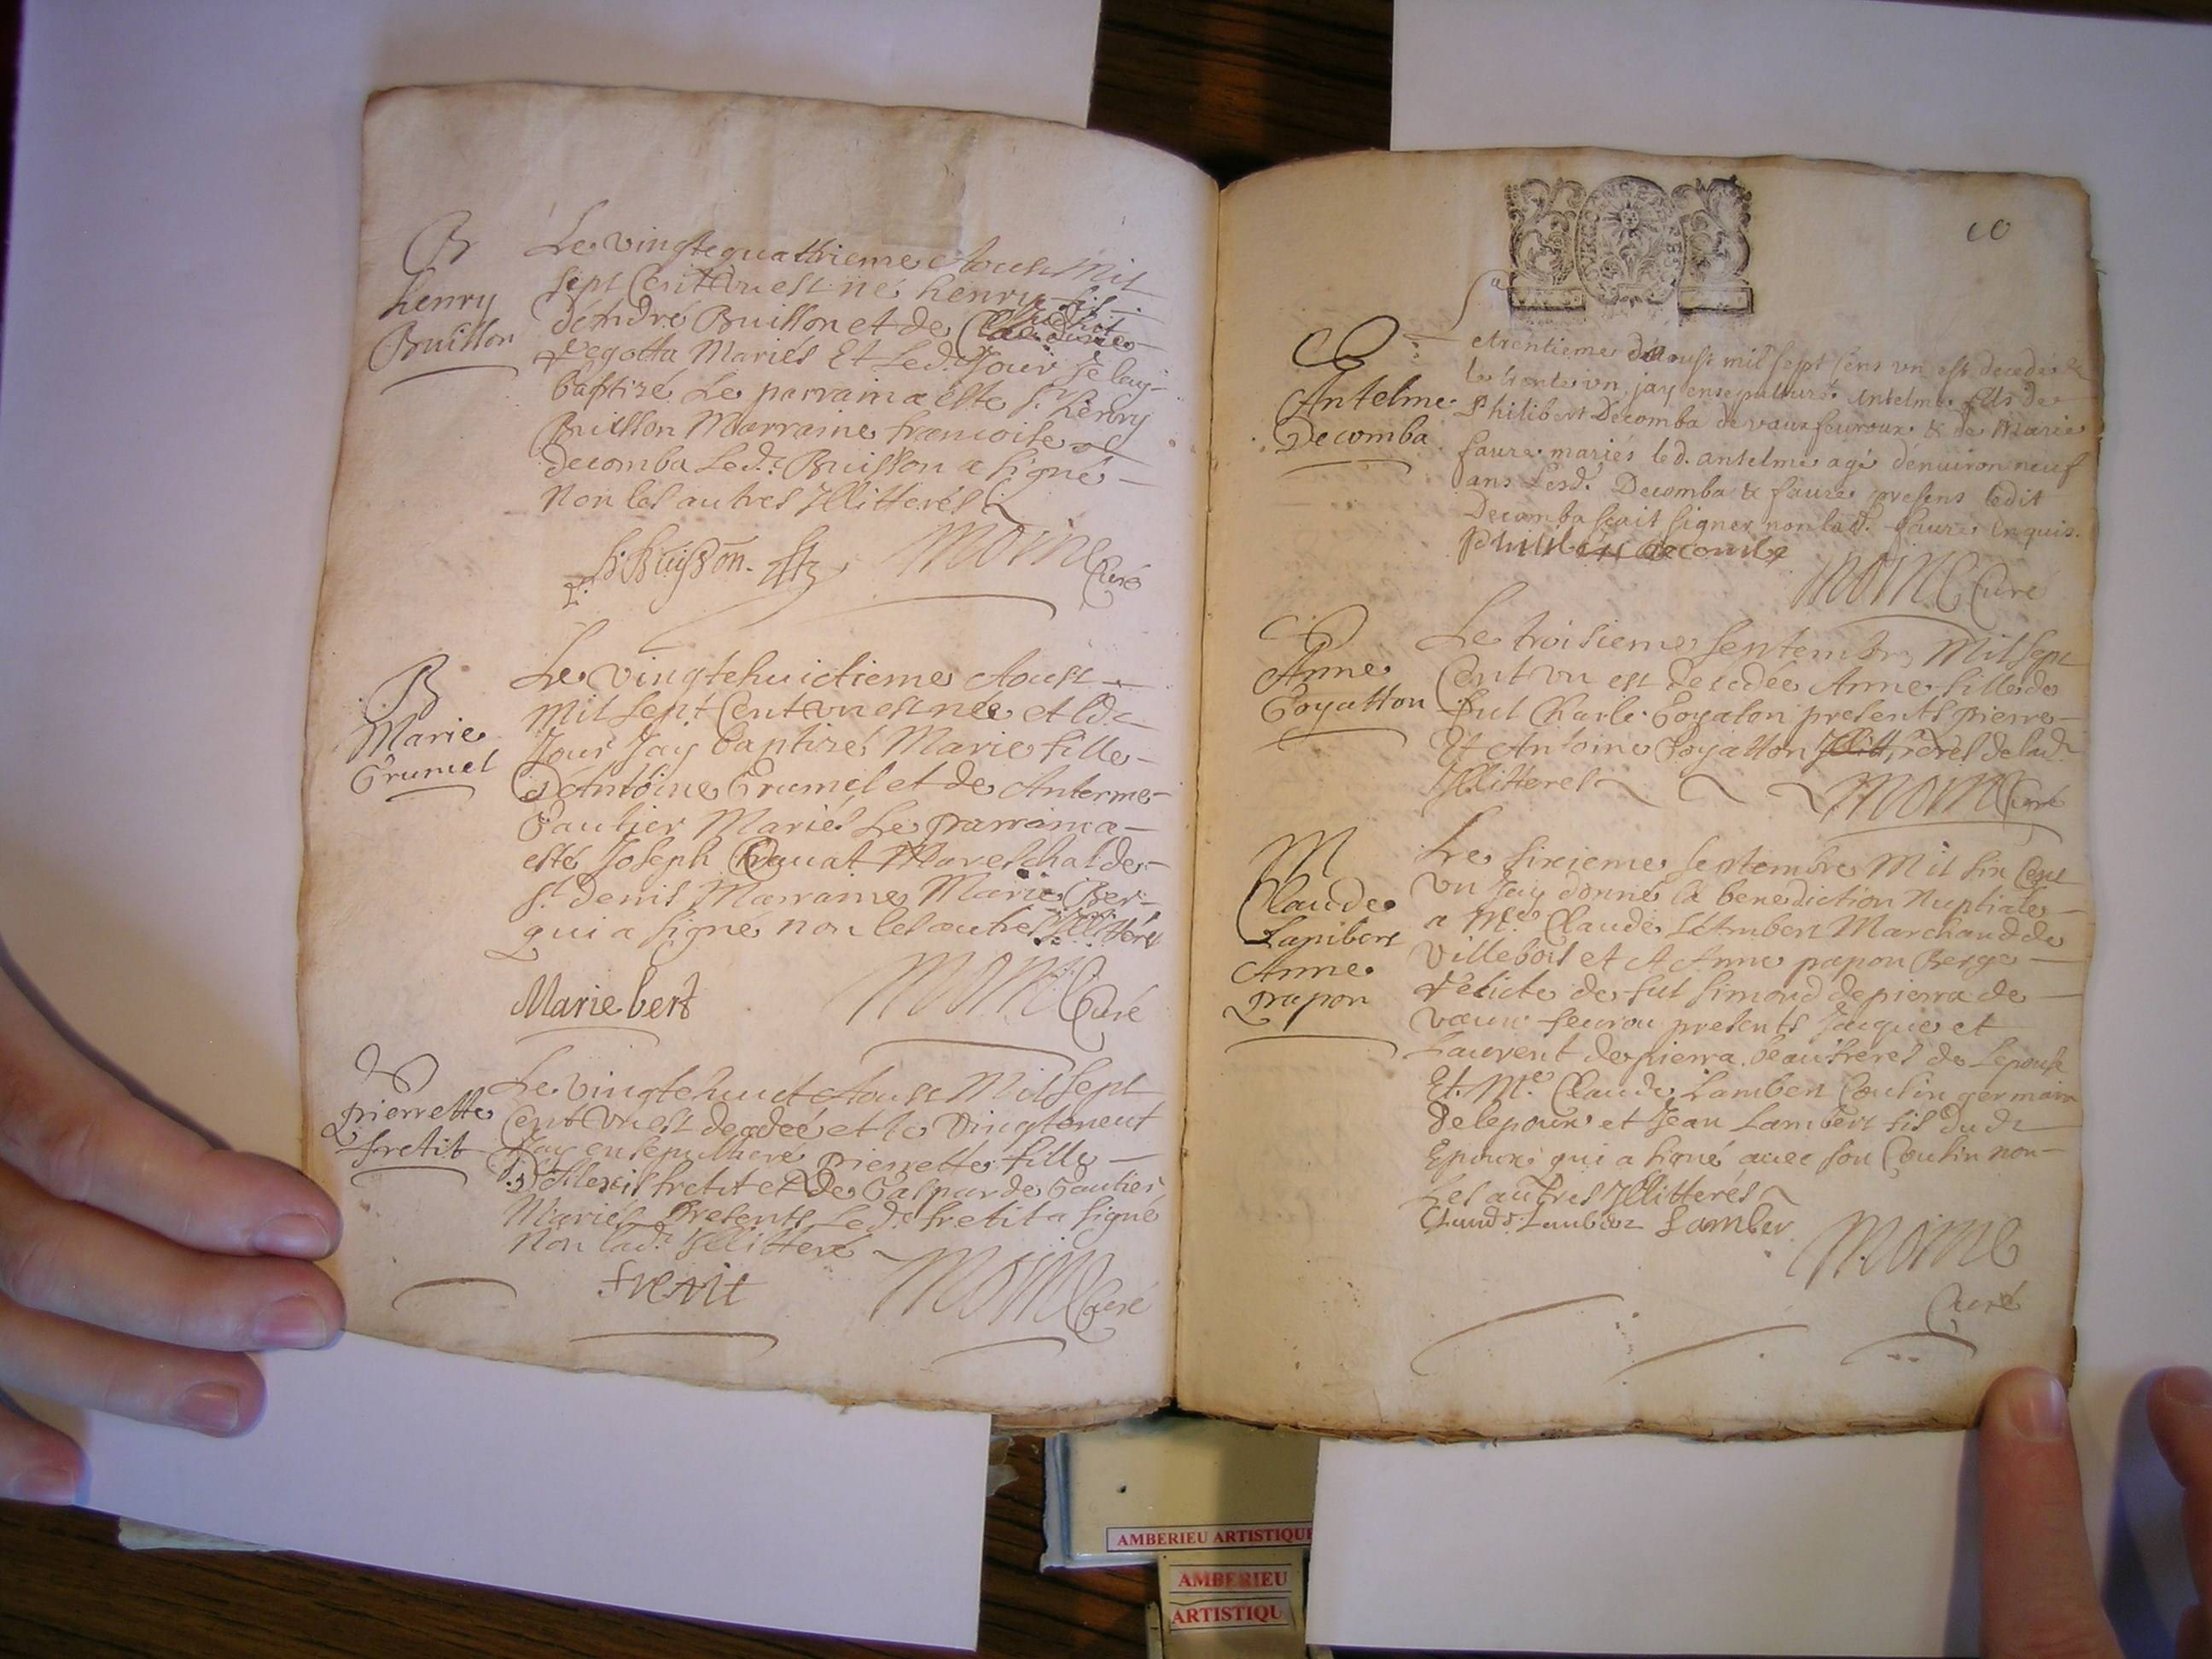 B
henry
Buisson
Le vingtequattrieme Aoust Mil
sept Cent un est né henry fils
d'andré Buisson et de Claudine
Degotta Mariés Et led. Jour Je lay
baptizé Le parrain a esté Sr henry
Buisson Marraine francoise
decomba Led. Buisson a signé
Non les autres Illitterés
h. Buisson.
Moine Curé
B
Marie
Grumel
Le vingtehuictieme Aoust
Mil sept Cent un est née et led.
Jour Jay baptizé Marie fille
D'Antoine Grumel et de Anterme
Gautier Mariés Le parrain a
esté Joseph Cravat Mareschal de
St denis Marraine Marie Ber
qui a signé non les autres Illitterés
Marie bert
Moine Curé
D
pierrette
fretit
Le vingtehuict Aoust Mil sept
Cent un est decedeé et le vingteneuf
Jay ensepulturé pierrette fille
D'Alexis fretit et De Gasparde Gautier
Mariés Presents Led. fretit a signé
Non lad. Illitteré
fretit
Moine Curé
10
D
Antelme
Decomba
Le trentieme d'aoust mil sept cens un est decedé &
le trente un jay ensepulturé Antelme fils de
Philibert Decomba de vaux feuroux & de Marie
faure mariés led. antelme agé denuiron neuf
ans Lesd. Decomba & faure presens ledit
Decomba scait signer non lad. faure enquis.
Philibert decomba
Moine Curé
D
Anne
Goyatton
Le troisieme septembre Mil sept
Cent un est decedée Anne fille de
fut Charle Goyaton presents pierre
Et Antoine Goyatton freres de lad.
Illitterés
Moine Curé
M
Claude
Lambert
Anne
papon
Le sixieme septembre Mil six Cent
un Jay donné la benediction Nuptiale
a Me Claude Lambert Marchand de
Villebois et A Anne papon Berge
Relicte de fut simond depierra de
vaux feurou presents Jacque et
Laurent depierra beaufreres de Lepouse
Et Me Claude Lambert Cousin germain
De lepoux et Jean Lambert fils dud.
Epoux qui a signé avec son Cousin non
Les autres Illitterés
Claude Lambert Lamber
Moine
Curé
AMBERIEU ARTISTIQUE
AMBERIEU
ARTISTIQU